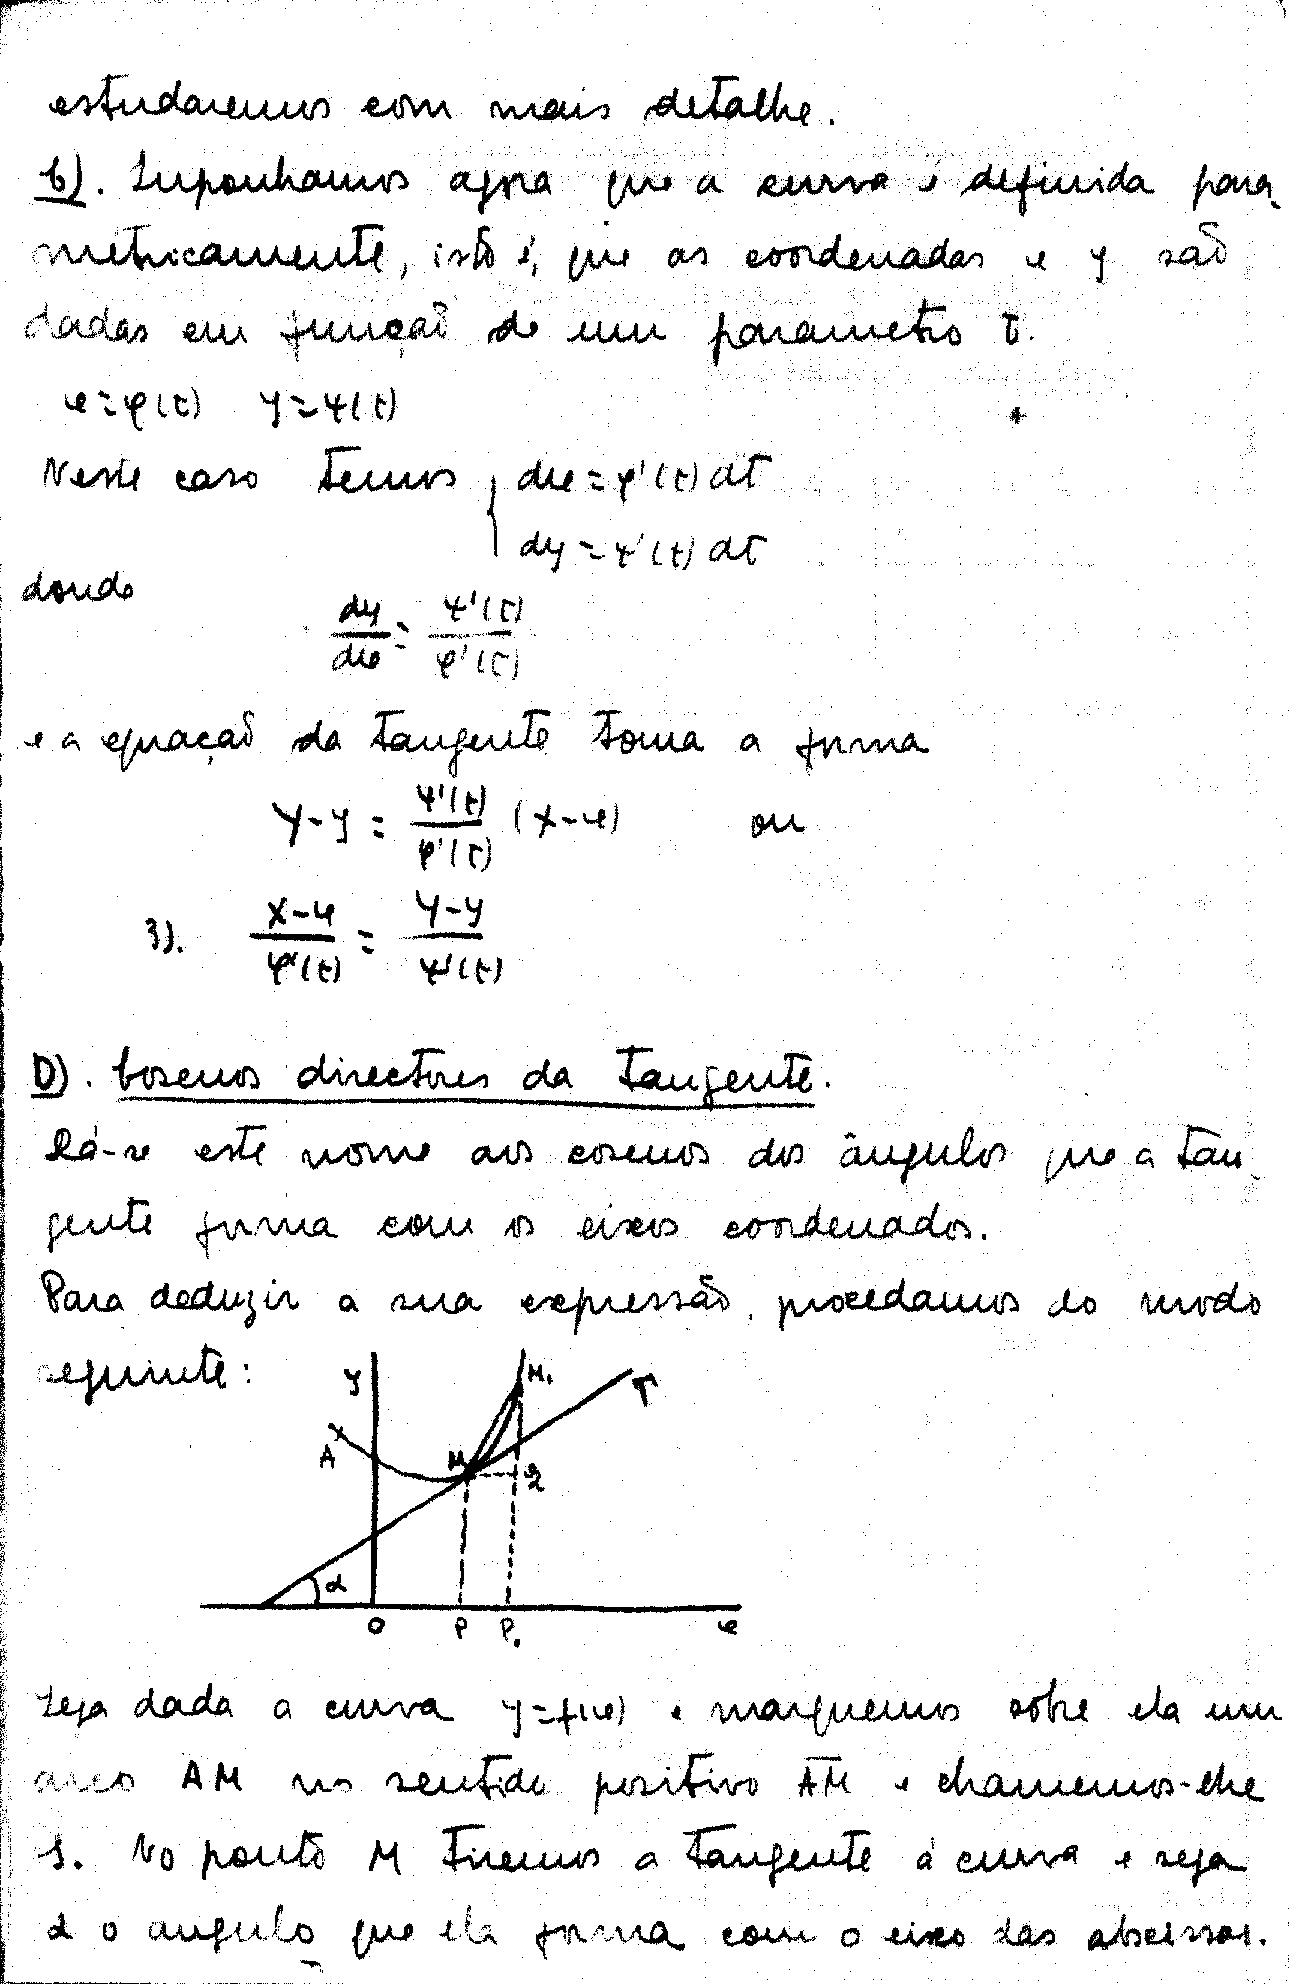 estudaremos com mais detalhe.
b). Suponhamos agora que a curva é definida para-
metricamente, isto é, que as coordenadas x y são
dadas em função de um parametro t.
x=φ(t) y=ψ(t)
Neste caso temos { dx=φ'(t)dt
dy=ψ'(t)dt
donde
dy/dx = ψ'(t)/φ'(t)
e a equação da tangente toma a forma
Y-y = ψ'(t)/φ'(t) (X-x) ou
3). (X-x)/φ'(t) = (Y-y)/ψ'(t)
D). Cosenos directores da tangente.
Dá-se este nome aos cosenos dos ângulos que a tan-
gente forma com os eixos coordenados.
Para deduzir a sua expressão, procedamos do modo
seguinte:
y M₁ T
A M Q
α
O P P₁ x
Seja dada a curva y=f(x) e marquemos sobre ela um
arco AM no sentido positivo AM e chamemos-lhe
s. No ponto M tiremos a tangente á curva e seja
α o angulo que ela forma com o eixo das abscissas.